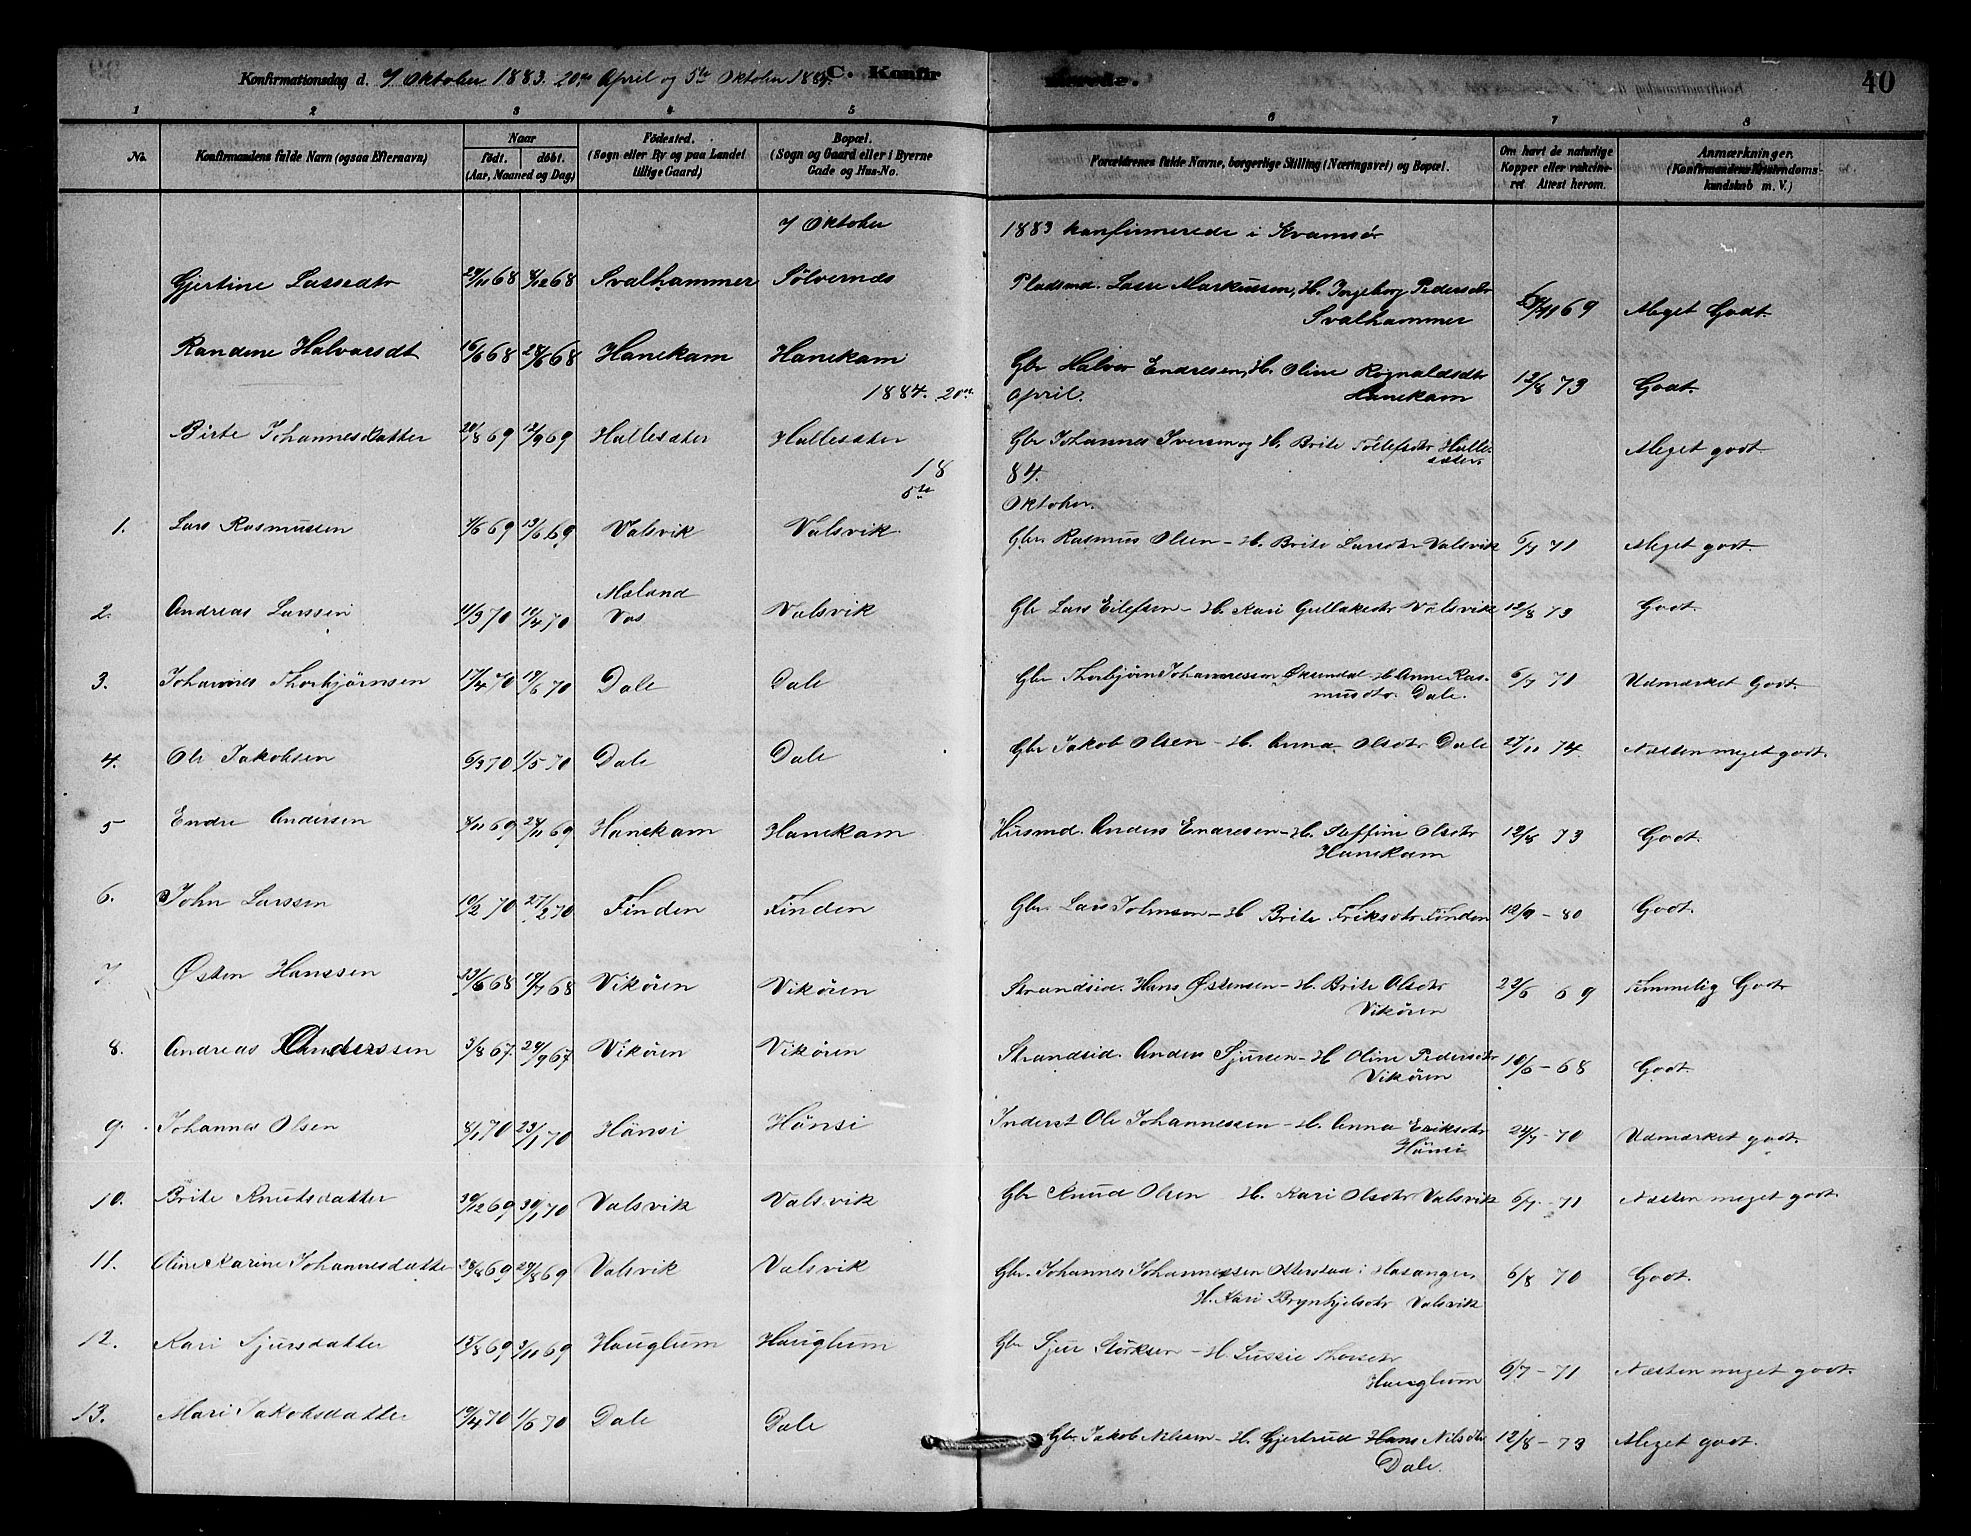 Konfirmationsdag d. 7 Oktober 1883. 20de April og 5te Oktober 1884. C. Konfirmerede. 40
1 2 3 4 5 6 7 8
No. Konfirmandens fulde Navn (ogsaa Efternavn) Naar født. døbt. (Aar, Maaned og Dag) Fødested. (Sogn eller By og paa Landet tillige Gaard) Bopæl. (Sogn og Gaard eller i Byerne Gade og Hus-No. Forældrenes fulde Navne, borgerlige Stilling (Næringsvei) og Bopæl. Om havt de naturlige Kopper eller vakcineret. Attest herom. Anmærkninger. (Konfirmandens Kristendomskundskab m. V.)
7 Oktober 1883 konfirmerede i Kvamsør
Gjertine Lassedtr 29/11 68 8/12 68 Svalhammer Sølvernæs Pladsmd. Lasse Markussen, H. Ingeborg Pedersdtr
Svalhammer /11 69 Meget Godt.
Randene Halvorsdt 16/6 68 28/6 68 Hanekam Hanekam Gbr Halvor Endresen, H. Oline Rognaldsdtr
Hanekam 12/8 73 Godt.
1884. 20de April.
Birte Johannesdatter 20/8 69 12/9 69 Hallesæter Hallesæter Gbr Johannes Iversen og H. Brite Tollefsdtr Hallesæter Meget godt.
1884.
5te Oktober.
1. Lars Rasmussen 7/6 69 13/6 69 Valsvik Valsvik Gbr. Rasmus Olsen – H. Brite Larsdtr Valsvik 6/7 71 Meget godt.
2. Andreas Larssen 11/3 70 17/4 70 Mæland
Vos Valsvik Gbr Lars Eilefsen – H. Kari Gullaksdtr Valsvik 12/8 73 Godt.
3. Johannes Thorbjørnsen 17/4 70 19/6 70 Dale Dale Gbr Thorbjørn Johannessen Øksendal H. Anne Rasmusdtr. Dale. 6/7 71 Udmærket Godt.
4. Ole Jakobsen 6/3 70 1/5 70 Dale Dale Gbr Jakob Olsen – H. Anna Olsdtr Dale 27/11 74 Næsten meget godt.
5 Endre Andersen 8/11 69 28/11 69 Hanekam Hanekam Husmd. Anders Endresen – H. Steffine Olsdtr
Hanekam 12/8 73 Godt.
6. John Larssen 10/2 70 27/2 70 Finden Finden Gbr. Lars Johnson – H. Brite Eriksdtr Finden 12/9 – 80 Godt.
7. Østen Hanssen 23/6 68 19/7 68 Vikøren Vikøren Strandsid. Hans Østensen – H. Brite Olsdtr
Vikøren 22/6 69 Temmelig Godt
8. Andreas Anderssen 3/8 67. 29/9 67 Vikøren Vikøren Strandsid. Anders Sjursen – H Oline Pedersdtr
Vikøren 10/6 – 68 Godt.
9. Johannes Olsen 8/1 70 23/1 70 Hønsi Hønsi Inderst Ole Johannessen – H. Anna Eriksdtr
Hønsi 24/7 – 70 Udmærket godt.
10. Brite Knutsdatter 30/12 69 30/1 70 Valsvik Valsvik Gbr Knud Olsen – H. Kari Olsdtr Valsvik 6/7 – 71 Næsten meget godt.
11. Oline Karine Johannesdatter 28/8 69 29/8 69 Valsvik Valsvik Gbr. Johannes Johannessen Østerstad i Hosanger
H. Kari Brynhjelsdtr Valsvik 6/8 70 Godt.
12. Kari Sjursdatter 15/8 69 3/10 69 Hauglum Hauglum Gbr Sjur Størksen – H. Sussie Thorsdtr
Hauglum 6/7 – 71 Næsten meget godt.
13. Mari Jakobsdatter 19/4 70 1/6 70 Dale Dale Gbr. Jakob Nilssen – H. Gjertrud Hans Nilsdtr
Dale. 12/8 – 73 Meget godt.